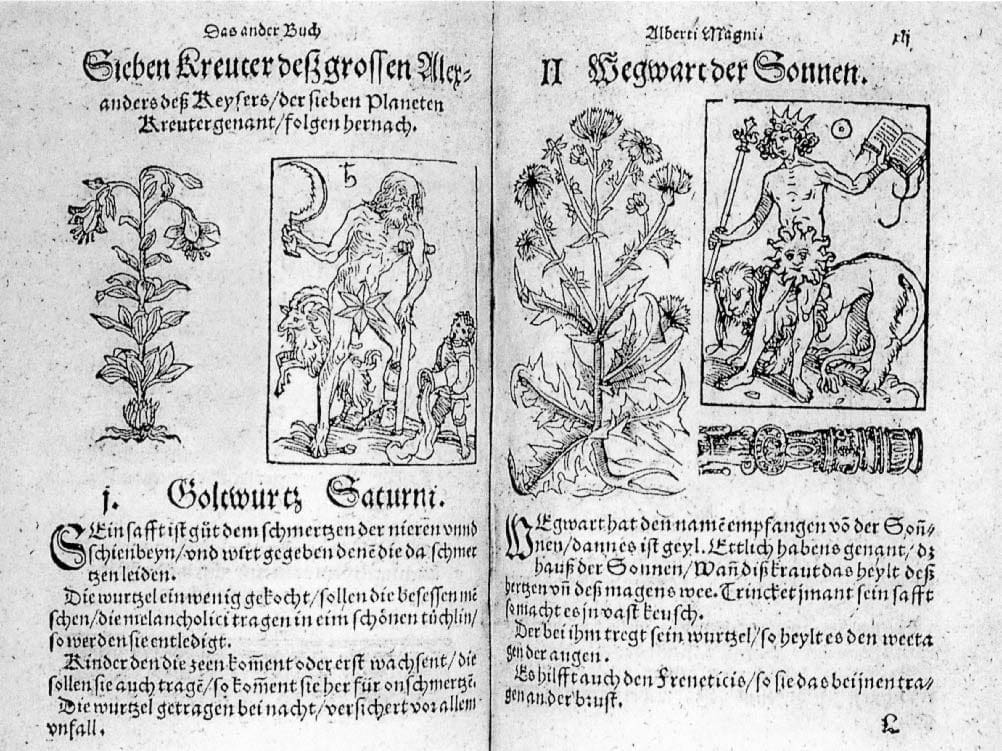 Das ander Buch
Sieben Kreuter deß grossen Alex-
anders deß Keysers/der sieben Planeten
Kreuter genant/folgen hernach.
♄
j. Goltwurtz Saturni.
SEin safft ist gůt dem schmertzen der nieren vnnd
schienbeyn/vnd wirt gegeben denē die da schmer
tzen leiden.
Die wurtzel ein wenig gekocht/sollen die besessen mē
schen/die melancholici tragen in eim schönen tüchlin/
so werden sie entledigt.
Kinder den die zeen kom̄ent oder erst wachsent/die
sollen sie auch tragē/so kom̄ent sie herfür on schmertzē.
Die wurtzel getragen bei nacht/versichert vor allem
vnfall.
Alberti Magni. xlj
II Wegwart der Sonnen.
☉
WEgwart hat den namē empfangen vō der Soñ-
nen/dann es ist geyl. Ettlich habens genant/dz
hauß der Sonnen/Wañ diß kraut das heylt deß
hertzen vñ deß magens wee. Trincket jmant sein safft
so macht es jn vast keusch.
Der bei ihm tregt sein wurtzel/so heylt es den weeta
gen der augen.
Es hilfft auch den Freneticis/so sie das bei jnen tra-
gen an der brust.
L